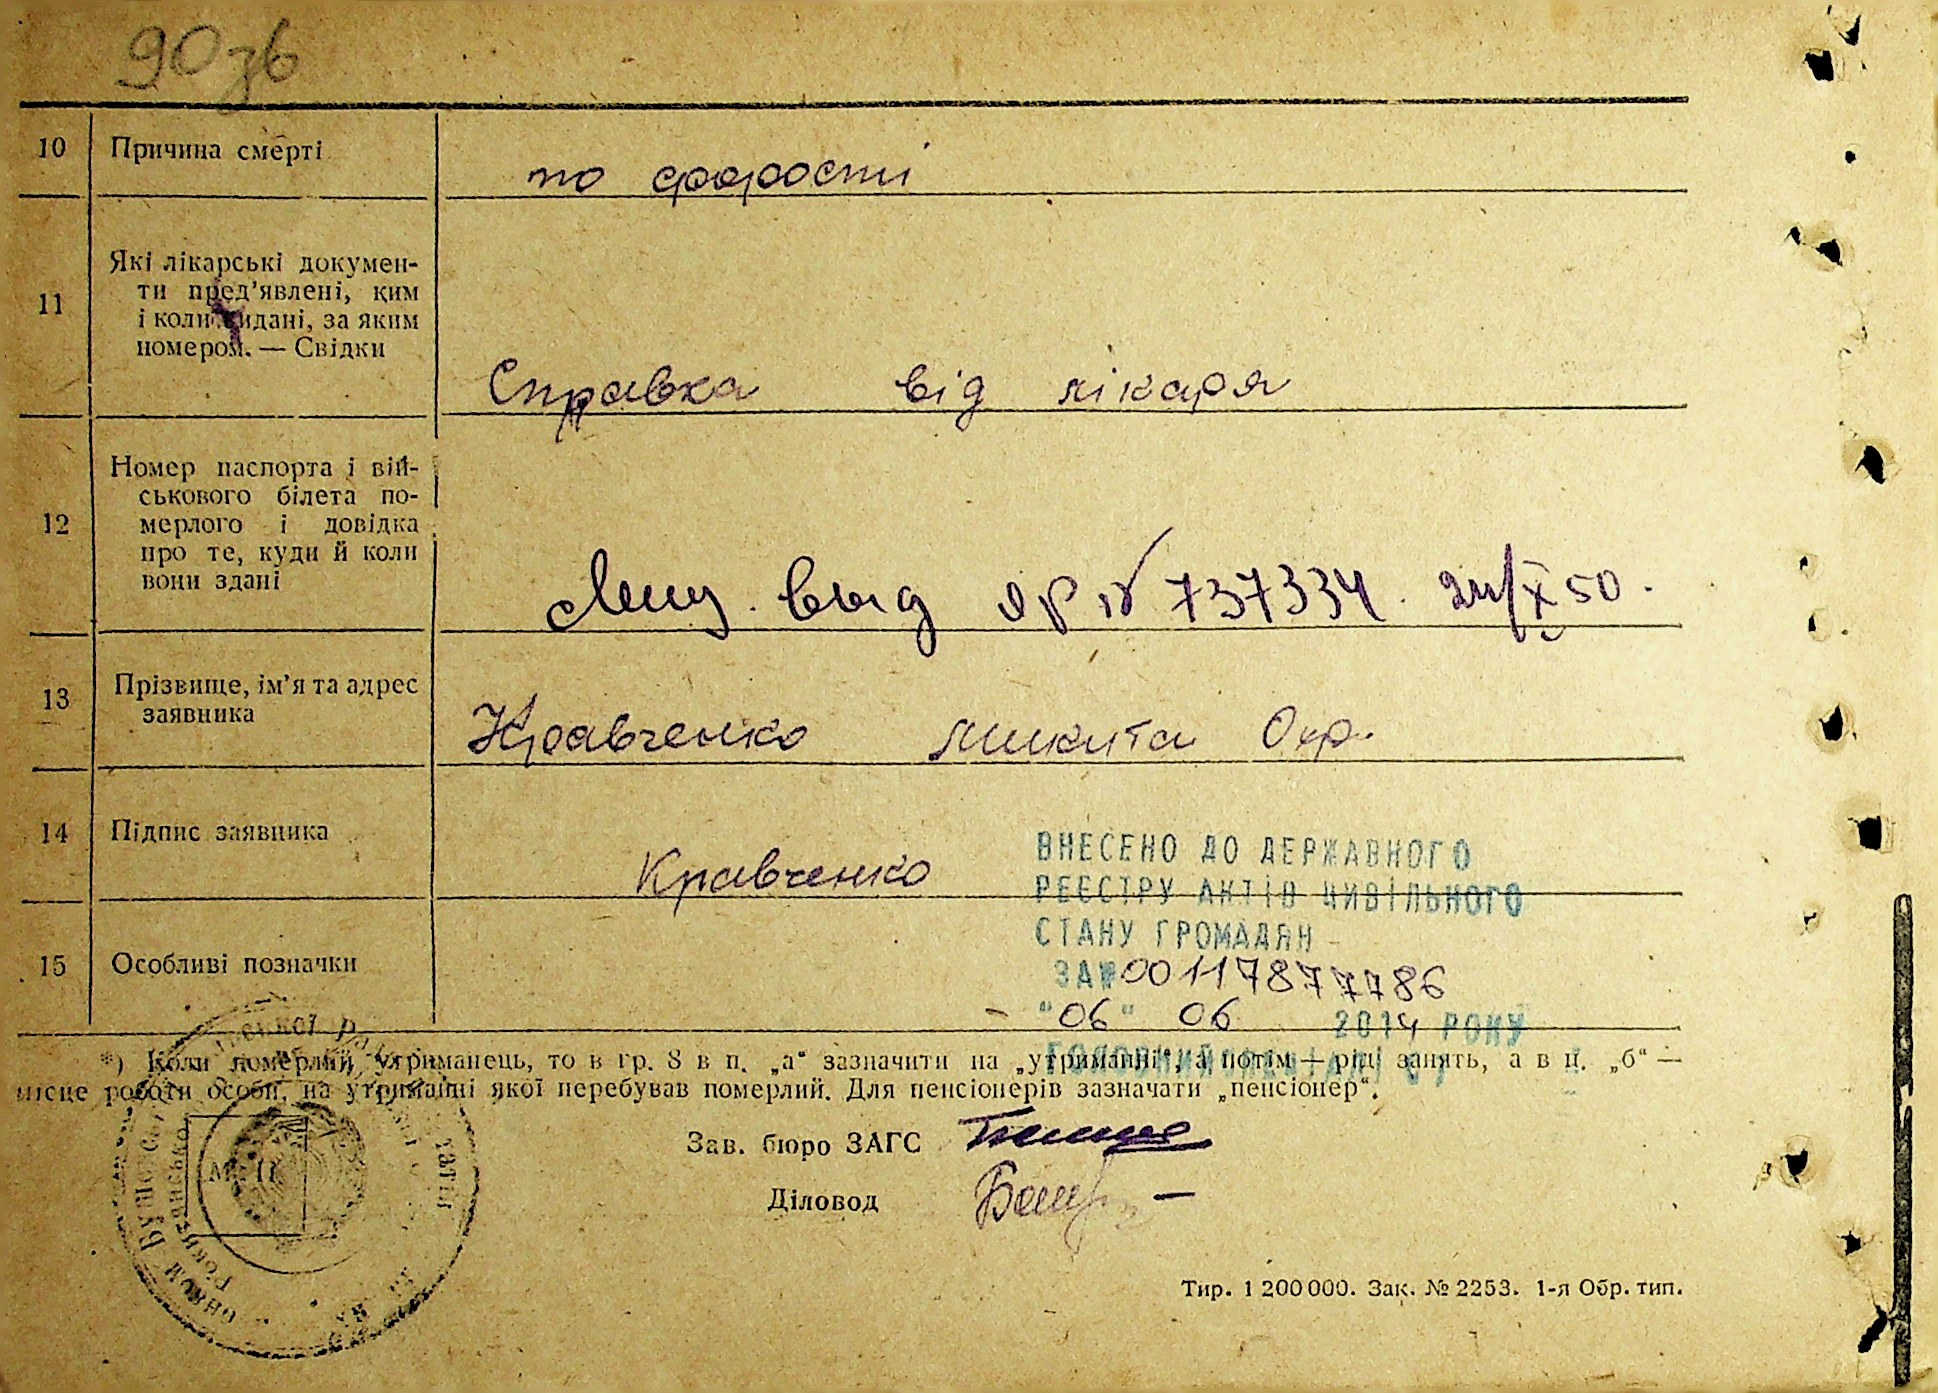 90зв
10 Причина смерті по старості
11 Які лікарські докумен-
ти пред'явлені, ким
і коли видані, за яким
номером. — Свідки
Справка від лікаря
12 Номер паспорта і вій-
ськового білета по-
мерлого і довідка
про те, куди й коли
вони здані
выд № 737334. 50.
13 Прізвище, ім'я та адрес
заявника
Кравченко Микита Охр.
14 Підпис заявника Кравченко
15 Особливі позначки
ВНЕСЕНО ДО ДЕРЖАВНОГО
РЕЄСТРУ АКТІВ ЦИВІЛЬНОГО
СТАНУ ГРОМАДЯН
ЗА № 00117877786
"06" 06 2014 РОКУ
*) Коли померлий утриманець, то в гр. 8 в п. „а“ зазначити на „утриманні“, а потім — рід занять, а в п. „б“ —
місце роботи особи, на утриманні якої перебував померлий. Для пенсіонерів зазначати „пенсіонер“.
Зав. бюро ЗАГС
Діловод
М. П.
Тир. 1 200 000. Зак. № 2253. 1-я Обр. тип.